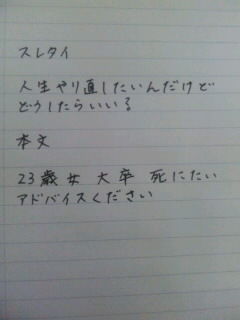 スレタイ
人生やり直したいんだけど
どうしたらいいる
本文
23歳女 大卒 死にたい
アドバイスください